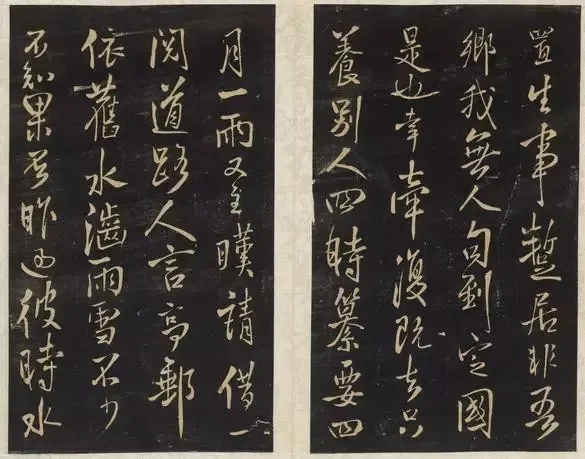 置生事蹔居非吾
鄉我無人向到定國
是也幸牽復既去只
養別人四時纂要四
月一雨又至暵請借一
閱道路人言高郵
依舊水雨雪不少
不知果否昨過彼時水